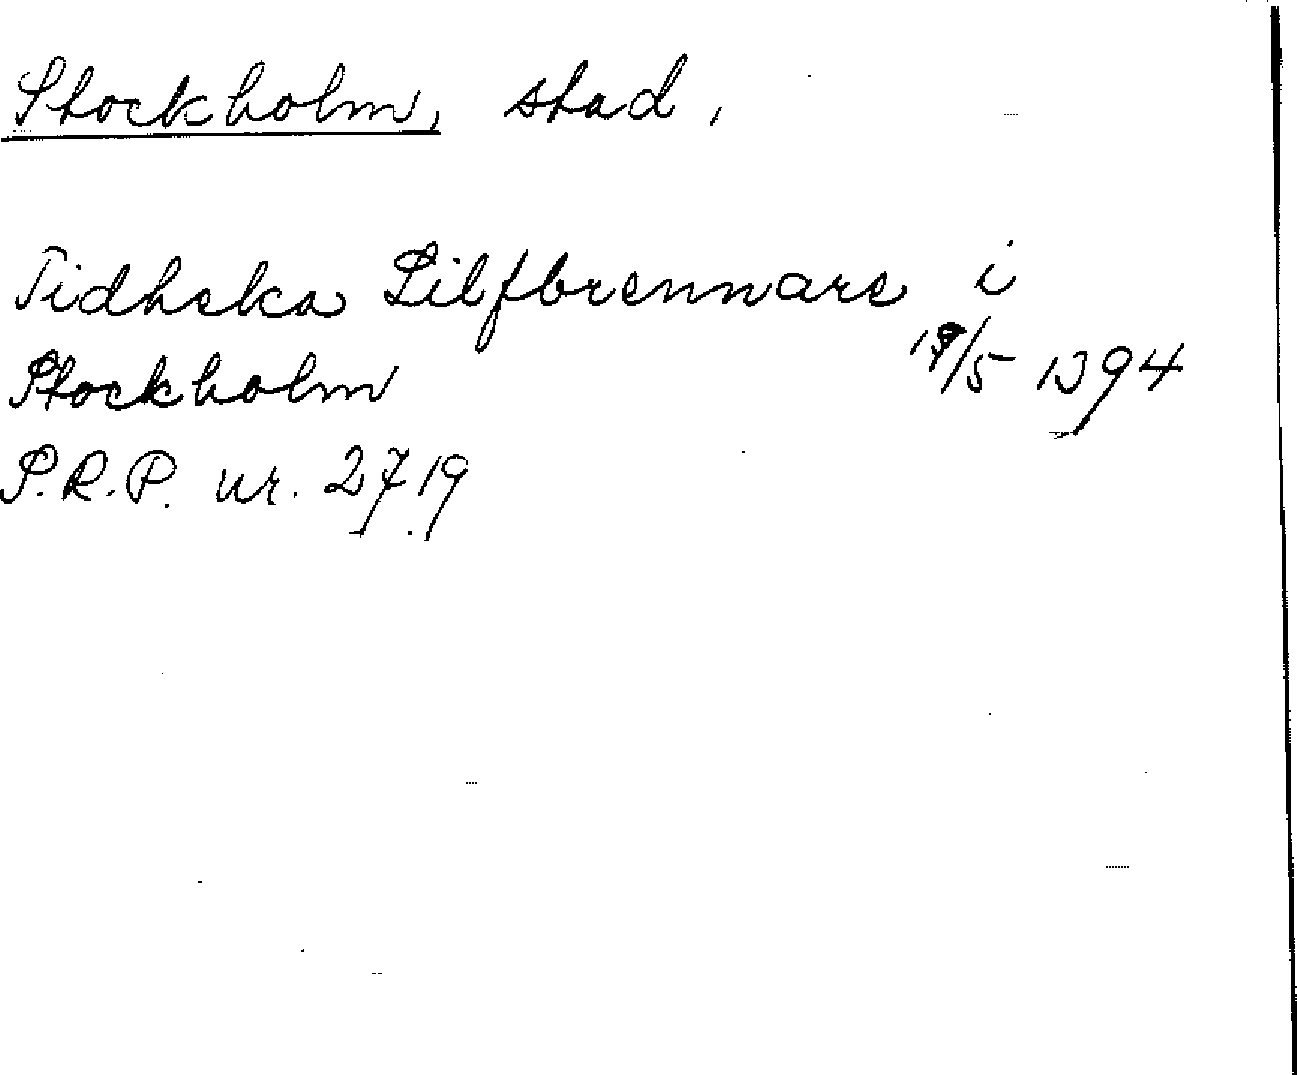 Stockholm, stad,
Tidheka Silfbrennare i
Stockholm /5 1394
S.R.P. nr. 2719